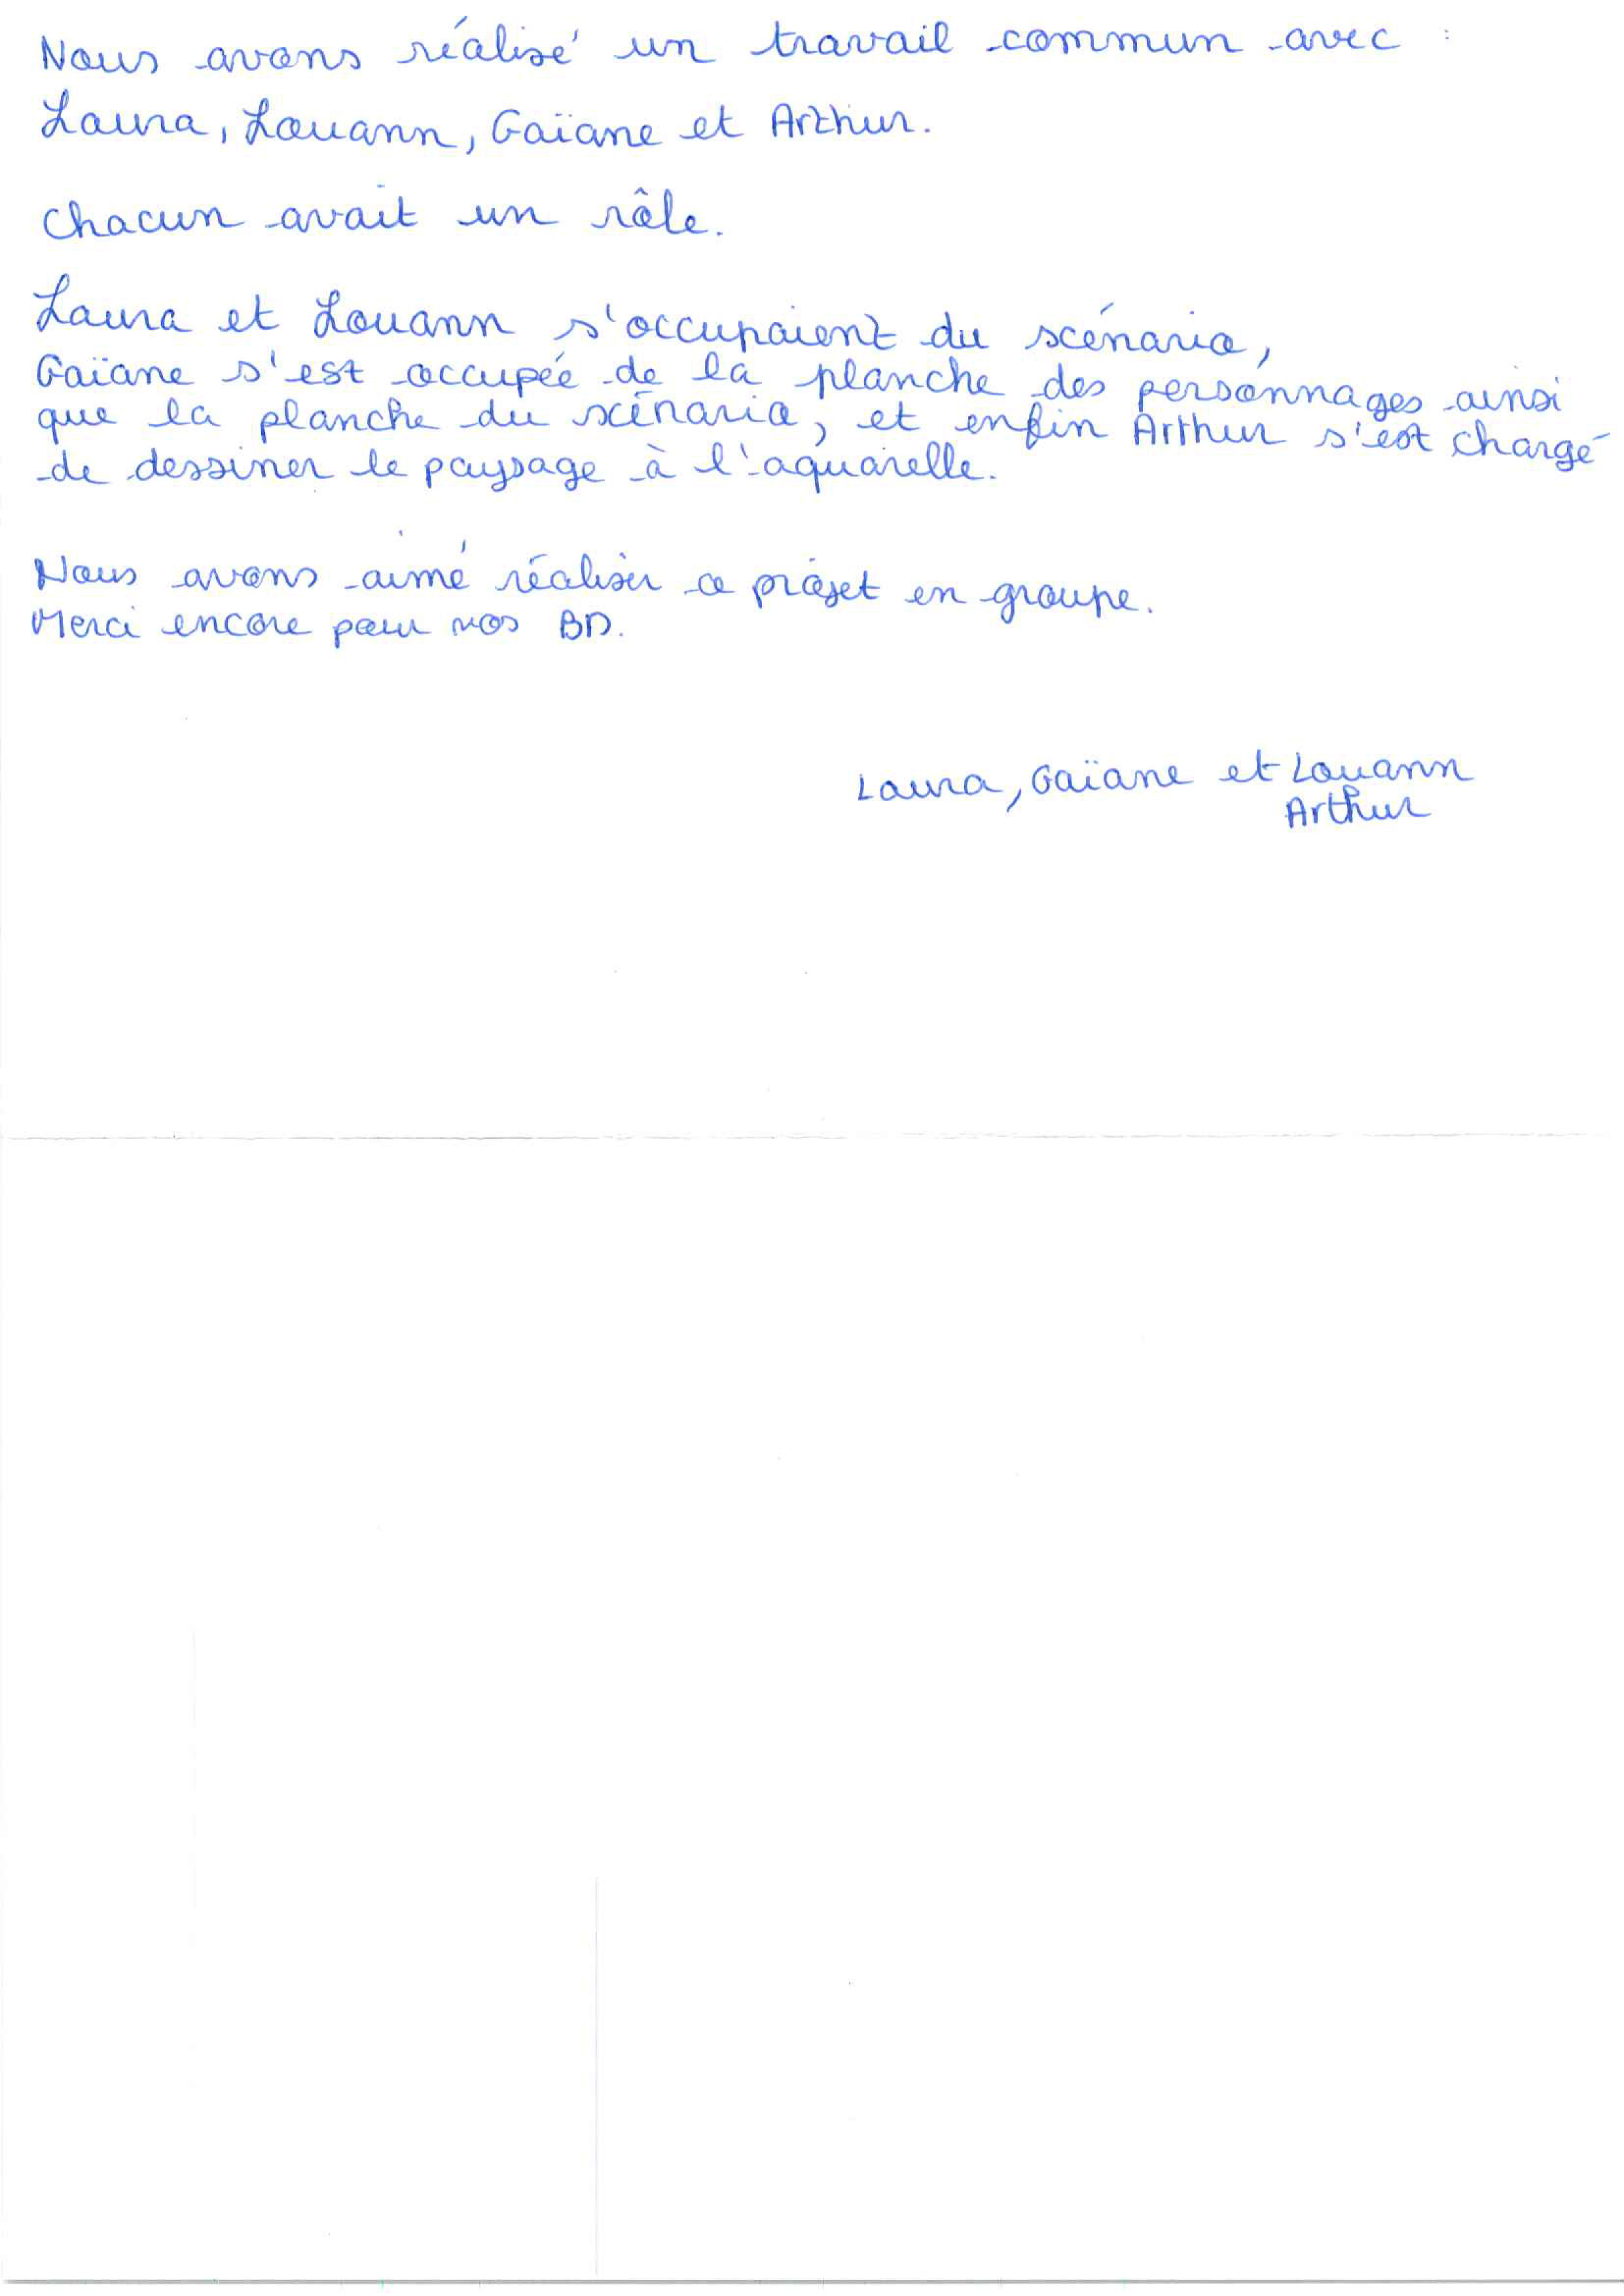 Nous avons réalisé un travail commun avec :
Laura, Louann, Gaïane et Arthur.
Chacun avait un rôle.
Laura et Louann s'occupaient du scénario,
Gaïane s'est occupée de la planche des personnages ainsi
que la planche du scénario, et enfin Arthur s'est chargé
de dessiner le paysage à l'aquarelle.
Nous avons aimé réaliser ce projet en groupe.
Merci encore pour vos BD.
Laura, Gaïane et Louann
Arthur